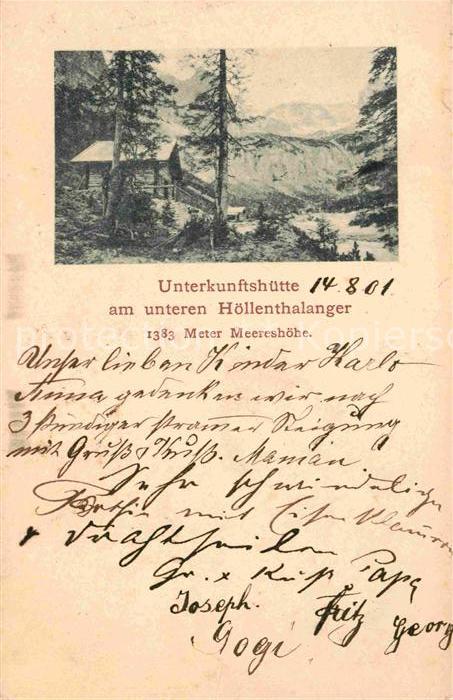 Unterkunftshütte 14.8.01.
am unteren Höllenthalanger
1383 Meter Meereshöhe.
Unser lieben Kinder Karlo
Anna gedenken wir nach
3 stündiger strammer Steigung
mit Gruß & Kuß. Maman
Sehr schwindelige
mit Eisen Klammern
& Drahtseilen
Gr. x Kuß Papa
Joseph. Fritz Georg
Gogi